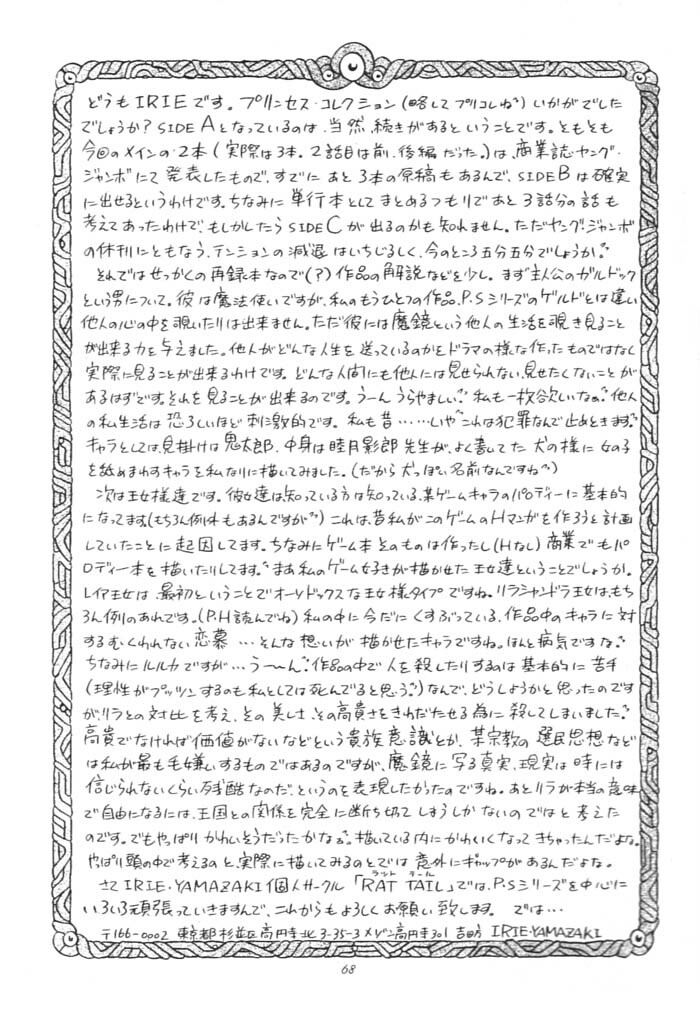 どうもIRIEです。プリンセス・コレクション(略してプリコレね)いかがでした
でしょうか?SIDE Aとなっているのは、当然、続きがあるということです。ともとも
今回のメインの2本(実際は3本。2話目は前、後編だった。)は、商業誌ヤング・
ジャンボにて発表したもので、すでにあと3本の原稿もあるんで、SIDE Bは確実
に出せるというわけです。ちなみに単行本としてまとめるつもりであと3話分の話も
考えてあったわけで、もしかしたらSIDE Cが出るのかも知れません。ただヤング・ジャンボ
の休刊にともなう、テンションの減退はいちじるしく、今のところ五分五分でしょうか。
それではせっかくの再録本なので(?)作品の解説などを少し。まず主人公のガルドック
という男について。彼は魔法使いですが、私のもうひとつの作品、P.Sシリーズのゲルドとは違い
他人の心の中を覗いたりは出来ません。ただ彼には魔鏡という他人の生活を覗き見ること
が出来る力を与えました。他人がどんな人生を送っているのかをドラマの様な作ったものではなく
実際に見ることが出来るわけです。どんな人間にも他人には見せられない、見せたくないことが
あるはずです。それを見ることが出来るのです。うーんうらやましい。私も一枚欲しいなぁ。他人
の私生活は恐ろしいほど刺激的です。私も昔……いや、これは犯罪なんで止めときます。
キャラとしては、見掛けは鬼太郎、中身は睦月影郎先生が、よく書いてた犬の様に女の子
を舐めまわすキャラを私なりに描いてみました。(だから犬っぽい名前なんですね)
次は王女様達です。彼女達は知っている方は知っている、某ゲームキャラのパロディーに基本的
になってます。(もちろん例外もあるんですが)これは、昔私がこのゲームのHマンガを作ろうと計画
していたことに起因してます。ちなみにゲーム本そのものは作ったし(Hなし)商業でもパ
ロディー本を描いたりしてます。まあ私のゲーム好きが描かせた王女達ということでしょうか。
レイア王女は最初ということでオーソドックスな王女様タイプですね。リラシャンドラ王女は、もち
ろん例のあれです。(P.H読んでね)私の中に今だにくすぶっている、作品中のキャラに対
するむくわれない恋慕…そんな想いが描かせたキャラですね。ほんと病気ですな。
ちなみにルルカですが…うーん。作品の中で人を殺したりするのは基本的に苦手
(理性がプッツンするのも私としては死んでると思う。)なんで、どうしようかと思ったのです
がリラとの対比を考え、その美しさ、その高貴さをきわだたせる為に殺してしまいました。
高貴でなければ価値がないなどという貴族意識とか、某宗教の選民思想など
は私が最も毛嫌いするものではあるのですが、魔鏡に写る真実、現実は時には
信じられないくらい残酷なのだ、というのを表現したかったのですね。あとリラが本当の意味
で自由になるには、王国との関係を完全に断ち切ってしまうしかないのではと考えた
のです。でもやっぱりかわいそうだったかなぁ。描いている内にかわいくなってきちゃったんだよな。
やっぱり頭の中で考えるのと、実際に描いてみるのとでは意外にギャップがあるんだよな。
さてIRIE・YAMAZAKI個人サークル「RAT TAIL」では、P.Sシリーズを中心に
ラット テール
いろいろ頑張っていきますんで、これからもよろしくお願い致します。 では…
〒166-0002 東京都杉並区高円寺北3-35-3メゾン高円寺301 吉田方 IRIE・YAMAZAKI
68